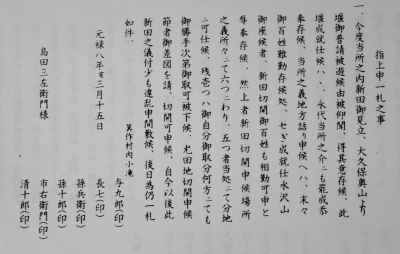 指上申一札之事
一、今度当所之内新田御見立、大久保奥山より
堰御普請被遊候由被仰聞、得其意存候、此
堰成就仕候ハヽ、永代当所之介ニも罷成忝
奉存候、当所之義地方詰り申候ヘハ、末々
御百姓難勤存候処、せぎ成就仕水沢山
御座候者、新田切開御百姓も相勤可申と
難有奉存候、然上者新田切開申候場所
之義所々ニて六つニわり、五つ者当処ニて分地
ニ可仕候、残壱つハ御自分御取分何方ニても
御勝手次第御取可被下候、尤田地切開申候
節者御差図を請、切開可申候、自今以後此
新田之儀付少も違乱申間敷候、後日為仍一札
如件、
元禄八年亥三月十五日
箕作村内小滝
与九郎(印)
長七(印)
孫兵衛(印)
孫十郎(印)
市右衛門(印)
清十郎(印)
島田三左衛門様